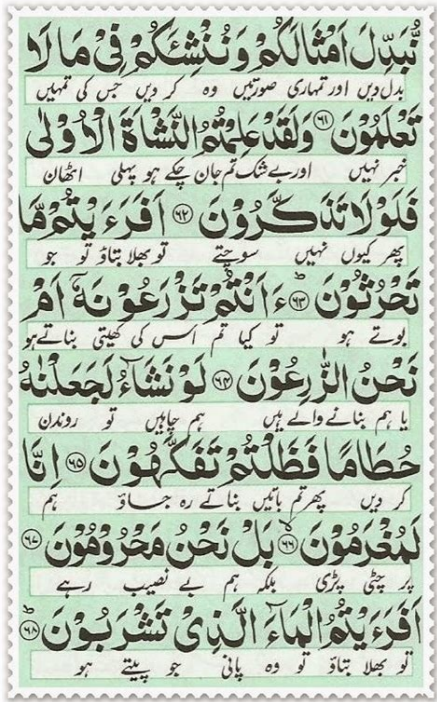 نُّبَدِّلَ اَمْثَالَكُمْ وَنُنْشِئَكُمْ فِیْ مَا لَا
بدل دیں اور تمہاری صورتیں وہ کر دیں جس کی تمہیں
تَعْلَمُوْنَ ﴿۶۱﴾ وَلَقَدْ عَلِمْتُمُ النَّشْاَةَ الْاُوْلٰی
خبر نہیں اور بے شک تم جان چکے ہو پہلی اٹھان
فَلَوْلَا تَذَكَّرُوْنَ ﴿۶۲﴾ اَفَرَءَیْتُمْ مَّا
پھر کیوں نہیں سوچتے تو بھلا بتاؤ تو جو
تَحْرُثُوْنَ ﴿۶۳﴾ ءَاَنْتُمْ تَزْرَعُوْنَهٗۤ اَمْ
بوتے ہو تو کیا تم اس کی کھیتی بناتے ہو
نَحْنُ الزّٰرِعُوْنَ ﴿۶۴﴾ لَوْ نَشَآءُ لَجَعَلْنٰهُ
یا ہم بنانے والے ہیں ہم چاہیں تو روندن
حُطَامًا فَظَلْتُمْ تَفَكَّهُوْنَ ﴿۶۵﴾ اِنَّا
کر دیں پھر تم باتیں بناتے رہ جاؤ ہم
لَمُغْرَمُوْنَ ﴿۶۶﴾ بَلْ نَحْنُ مَحْرُوْمُوْنَ ﴿۶۷﴾
پر چٹی پڑی بلکہ ہم بے نصیب رہے
اَفَرَءَیْتُمُ الْمَآءَ الَّذِیْ تَشْرَبُوْنَ ﴿۶۸﴾
تو بھلا بتاؤ تو وہ پانی جو پیتے ہو